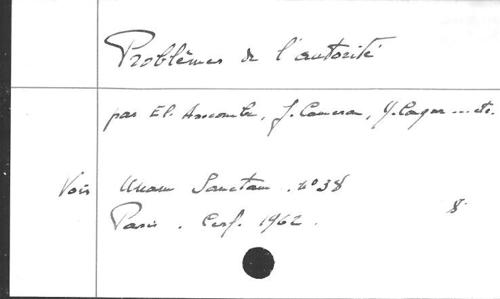 Problèmes de l'autorité
par El. Anscombe, J. Cameron, Y. Congar ... etc.
Voir Unam Sanctam . n° 38
Paris . Cerf. 1962 . 8°